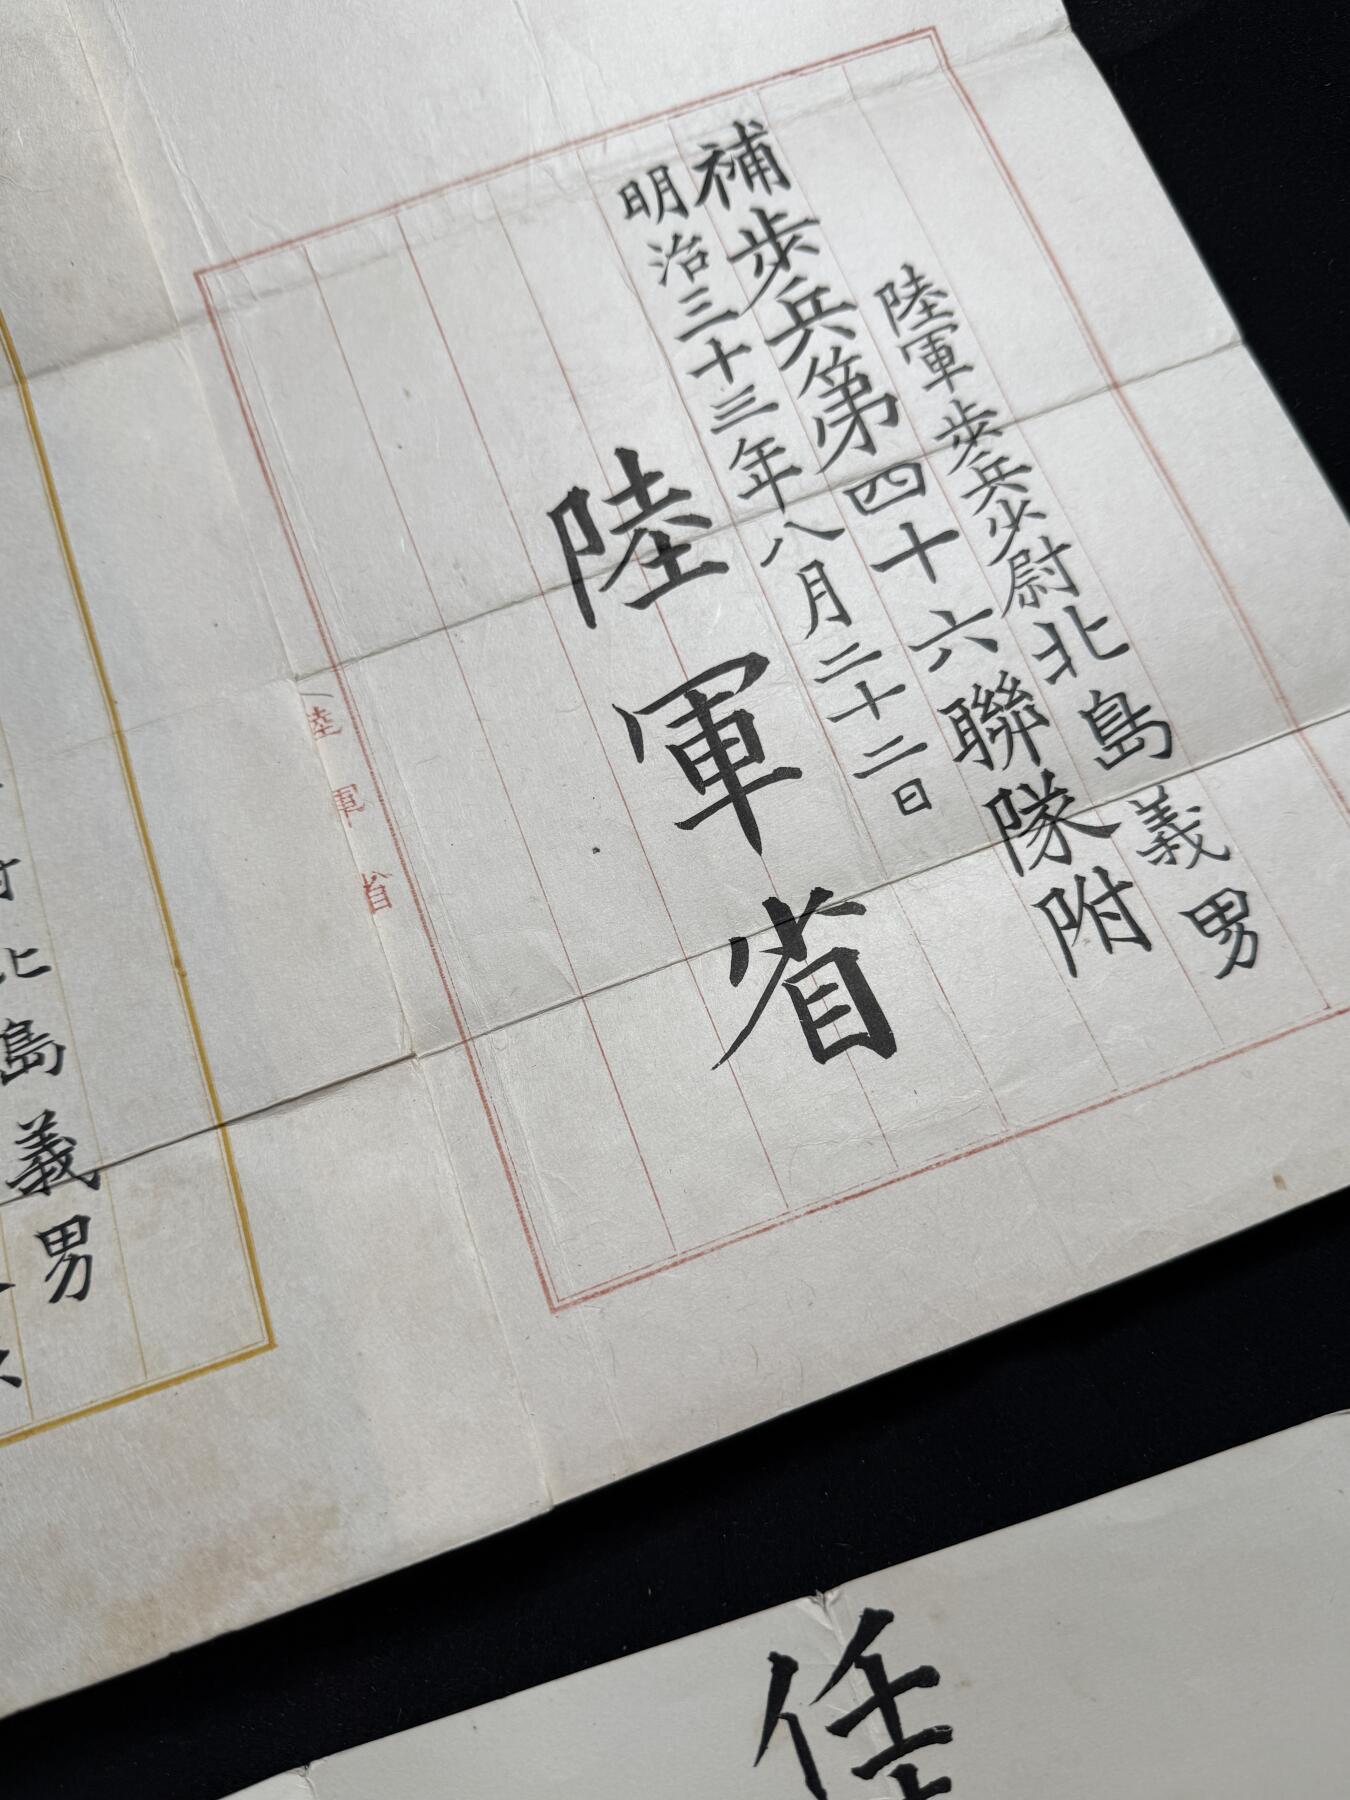 陸軍歩兵少尉北島義男
補歩兵第四十六聯隊附
明治三十三年八月二十二日
陸軍省
陸軍省
北島義男
任